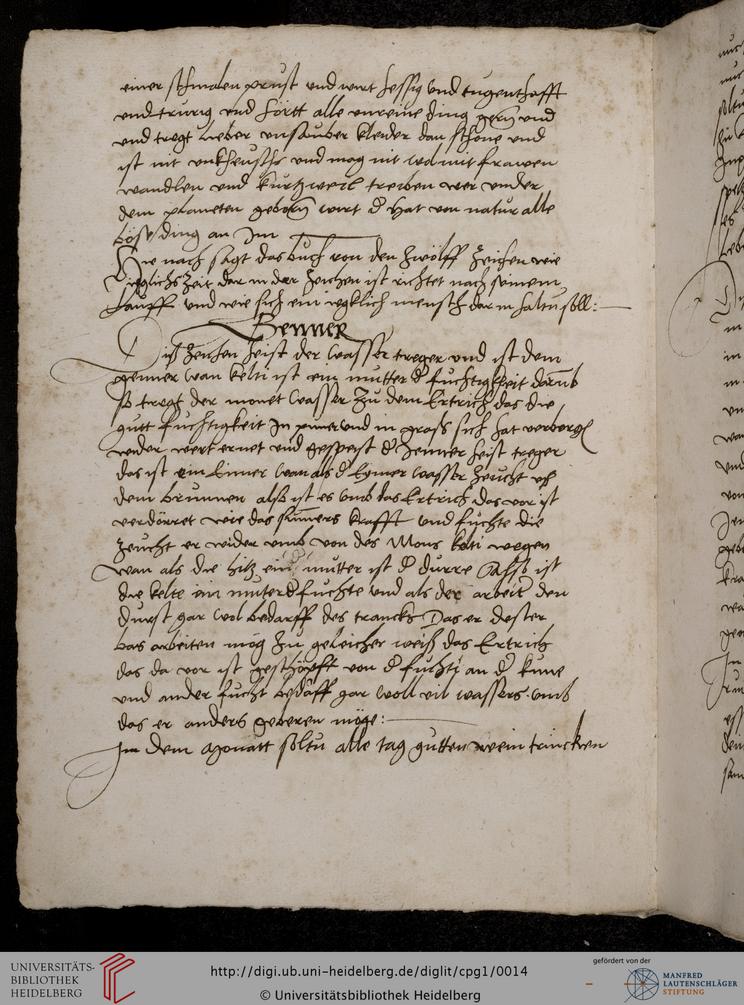 einer schmalen prust und wirt hessig und tugenthafft
und trurig und hört alle unreine ding gern und
und tregt lieber unsauber kleider dan schone und
ist nit unkheusche und mag nit wol mit frawen
wandlen und kurtzweil treiben wer under
dem planeten geborn wirt d hat von natur alle
böse ding an im
Hie nach sagt das buch von den zwölff zeichen wie
ieglichs zeit dar in der zeichen ist richtet nach seinem
lauff und wie sich ein yeklich mensch dar in haltn soll:
Jenner
Diß zeichen heist der wasser treger und ist dem
genner wan kelti ist ein mutter d fuchtigkeit darumb
so tregt der monet wasser zu dem Ertrich das die
gutt fuchtigkeit in und in groß sich hat verborgen
wider wert ernet und gespeist d Jenner heist treger
das ist ein Eimer wan als d Eymer wasser zeucht uß
dem brunnen also ist es umb das Ertrich das vor ist
verdörret wie das sumers krafft und fuchte die
zeucht er wider umb von des Mons kelti wegen
wan als die hitz ein mutter ist d durre Also ist
die kelte ein muter d fuchte und als der arbeiter den
Durst gar wol bedarff des trancks Das er dester
bas arbeiten mög zu geleicher weiß das Ertrich
das da vor ist geschöpfft von d fuchti an d
und ander frucht bedarff gar woll vil wassers umb
das er anders geberen möge:
In dem monatt soltu alle tag gutten wein trincken
UNIVERSITÄTS-
BIBLIOTHEK
HEIDELBERG
http://digi.ub.uni-heidelberg.de/diglit/cpg1/0014
© Universitätsbibliothek Heidelberg
gefördert von der
MANFRED
LAUTENSCHLÄGER
STIFTUNG